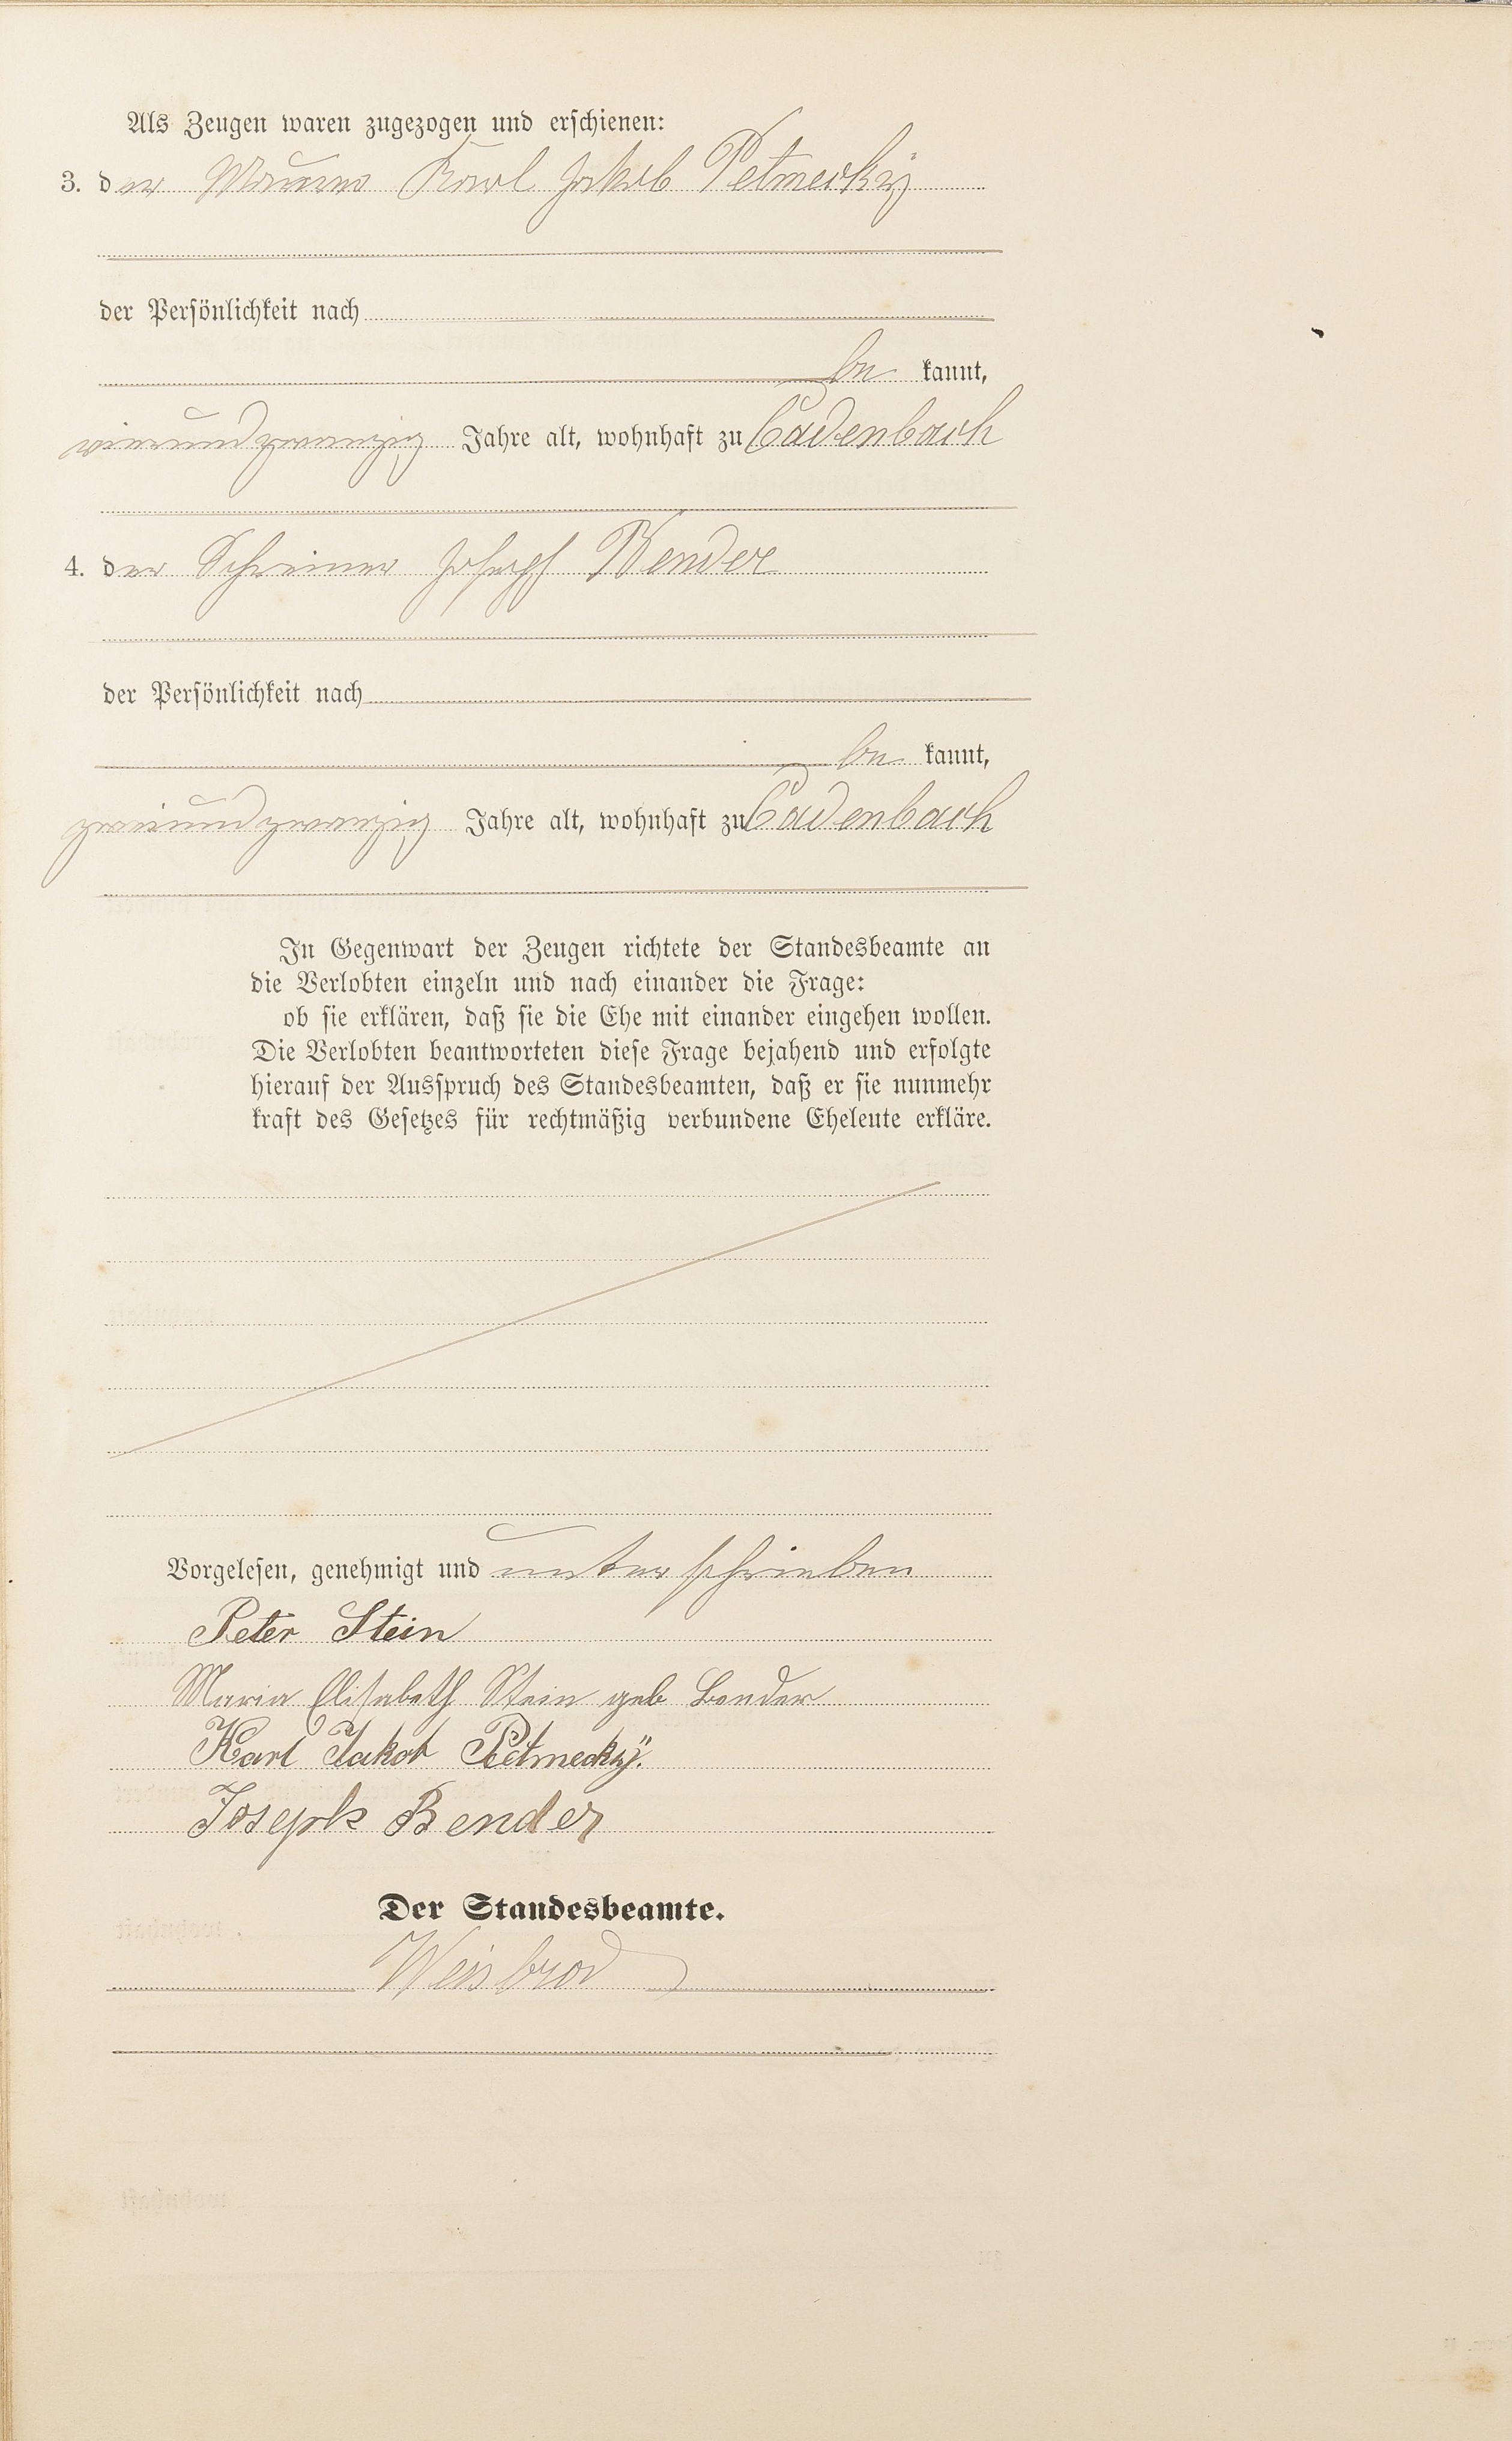 Als Zeugen waren zugezogen und erschienen:
3. der Maurer Karl Jakob Petmecky
der Persönlichkeit nach
be kannt,
vierundzwanzig Jahre alt, wohnhaft zu Cadenbach
4. der Schreiner Joseph Bender
der Persönlichkeit nach
be kannt,
zweiundzwanzig Jahre alt, wohnhaft zu Cadenbach
In Gegenwart der Zeugen richtete der Standesbeamte an
die Verlobten einzeln und nach einander die Frage:
ob sie erklären, daß sie die Ehe mit einander eingehen wollen.
Die Verlobten beantworteten diese Frage bejahend und erfolgte
hierauf der Ausspruch des Standesbeamten, daß er sie nunmehr
kraft des Gesetzes für rechtmäßig verbundene Eheleute erkläre.
Vorgelesen, genehmigt und unterschrieben
Peter Stein
Maria Elisabeth Stein geb Bender
Karl Jakob Petmecky.
Joseph Bender
Der Standesbeamte.
Weisbrod